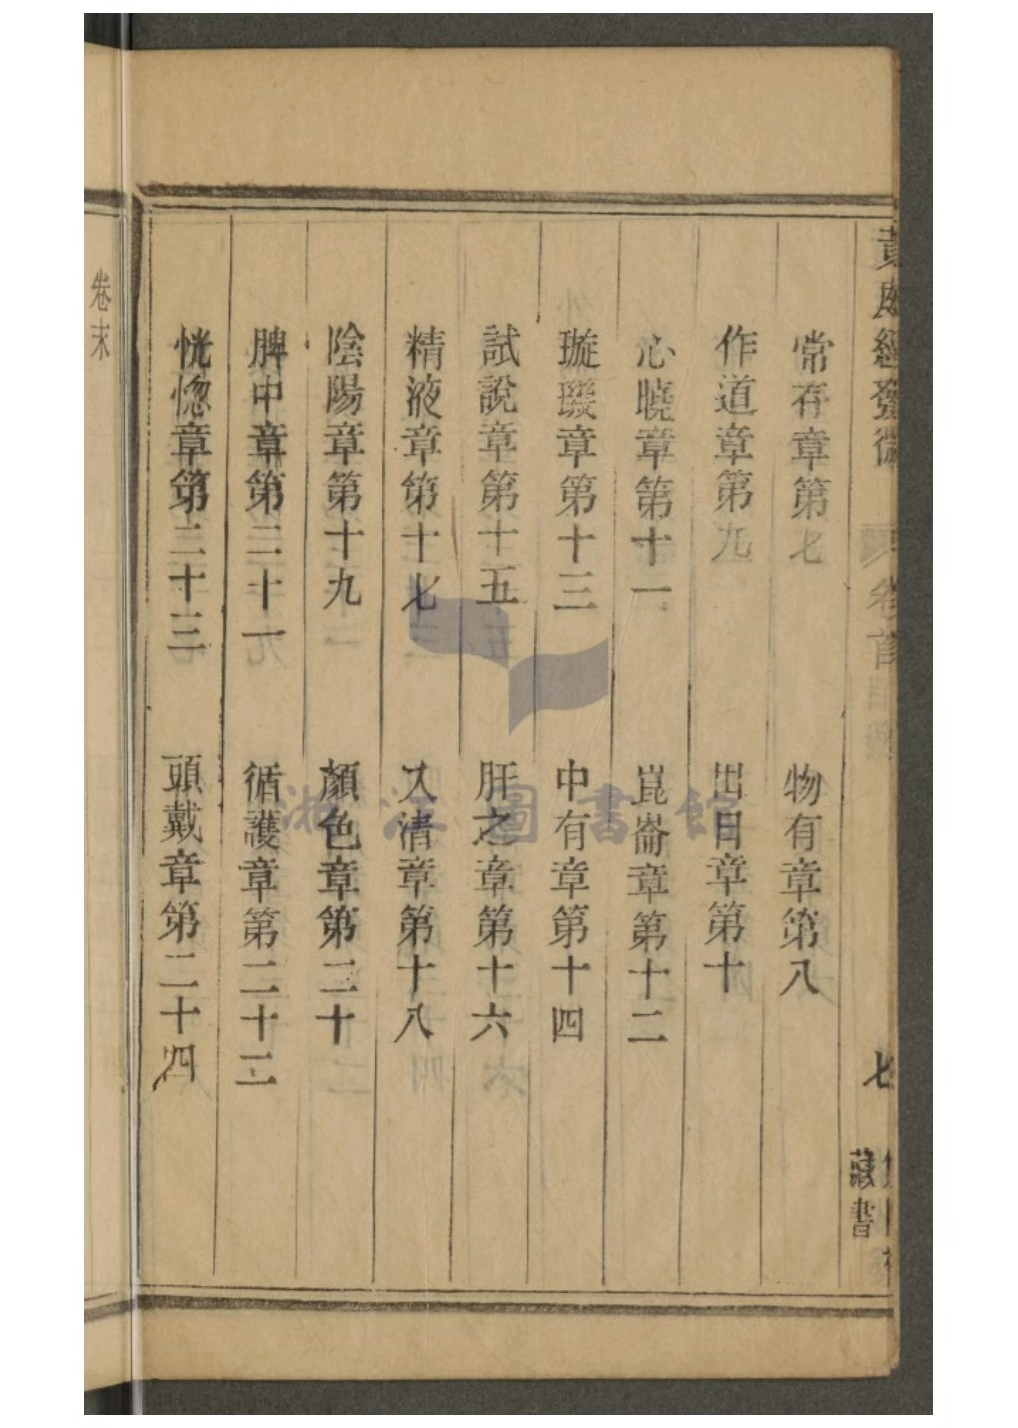 黃庭經發微
卷首
七
藏書
常存章第七
物有章第八
作道章第九
出日章第十
心曉章第十一
崑崙章第十二
璇璣章第十三
中有章第十四
試說章第十五
肝之章第十六
精液章第十七
入清章第十八
陰陽章第十九
顏色章第二十
脾中章第二十一
循護章第二十二
恍惚章第二十三
頭戴章第二十四
卷末
浙江圖書館